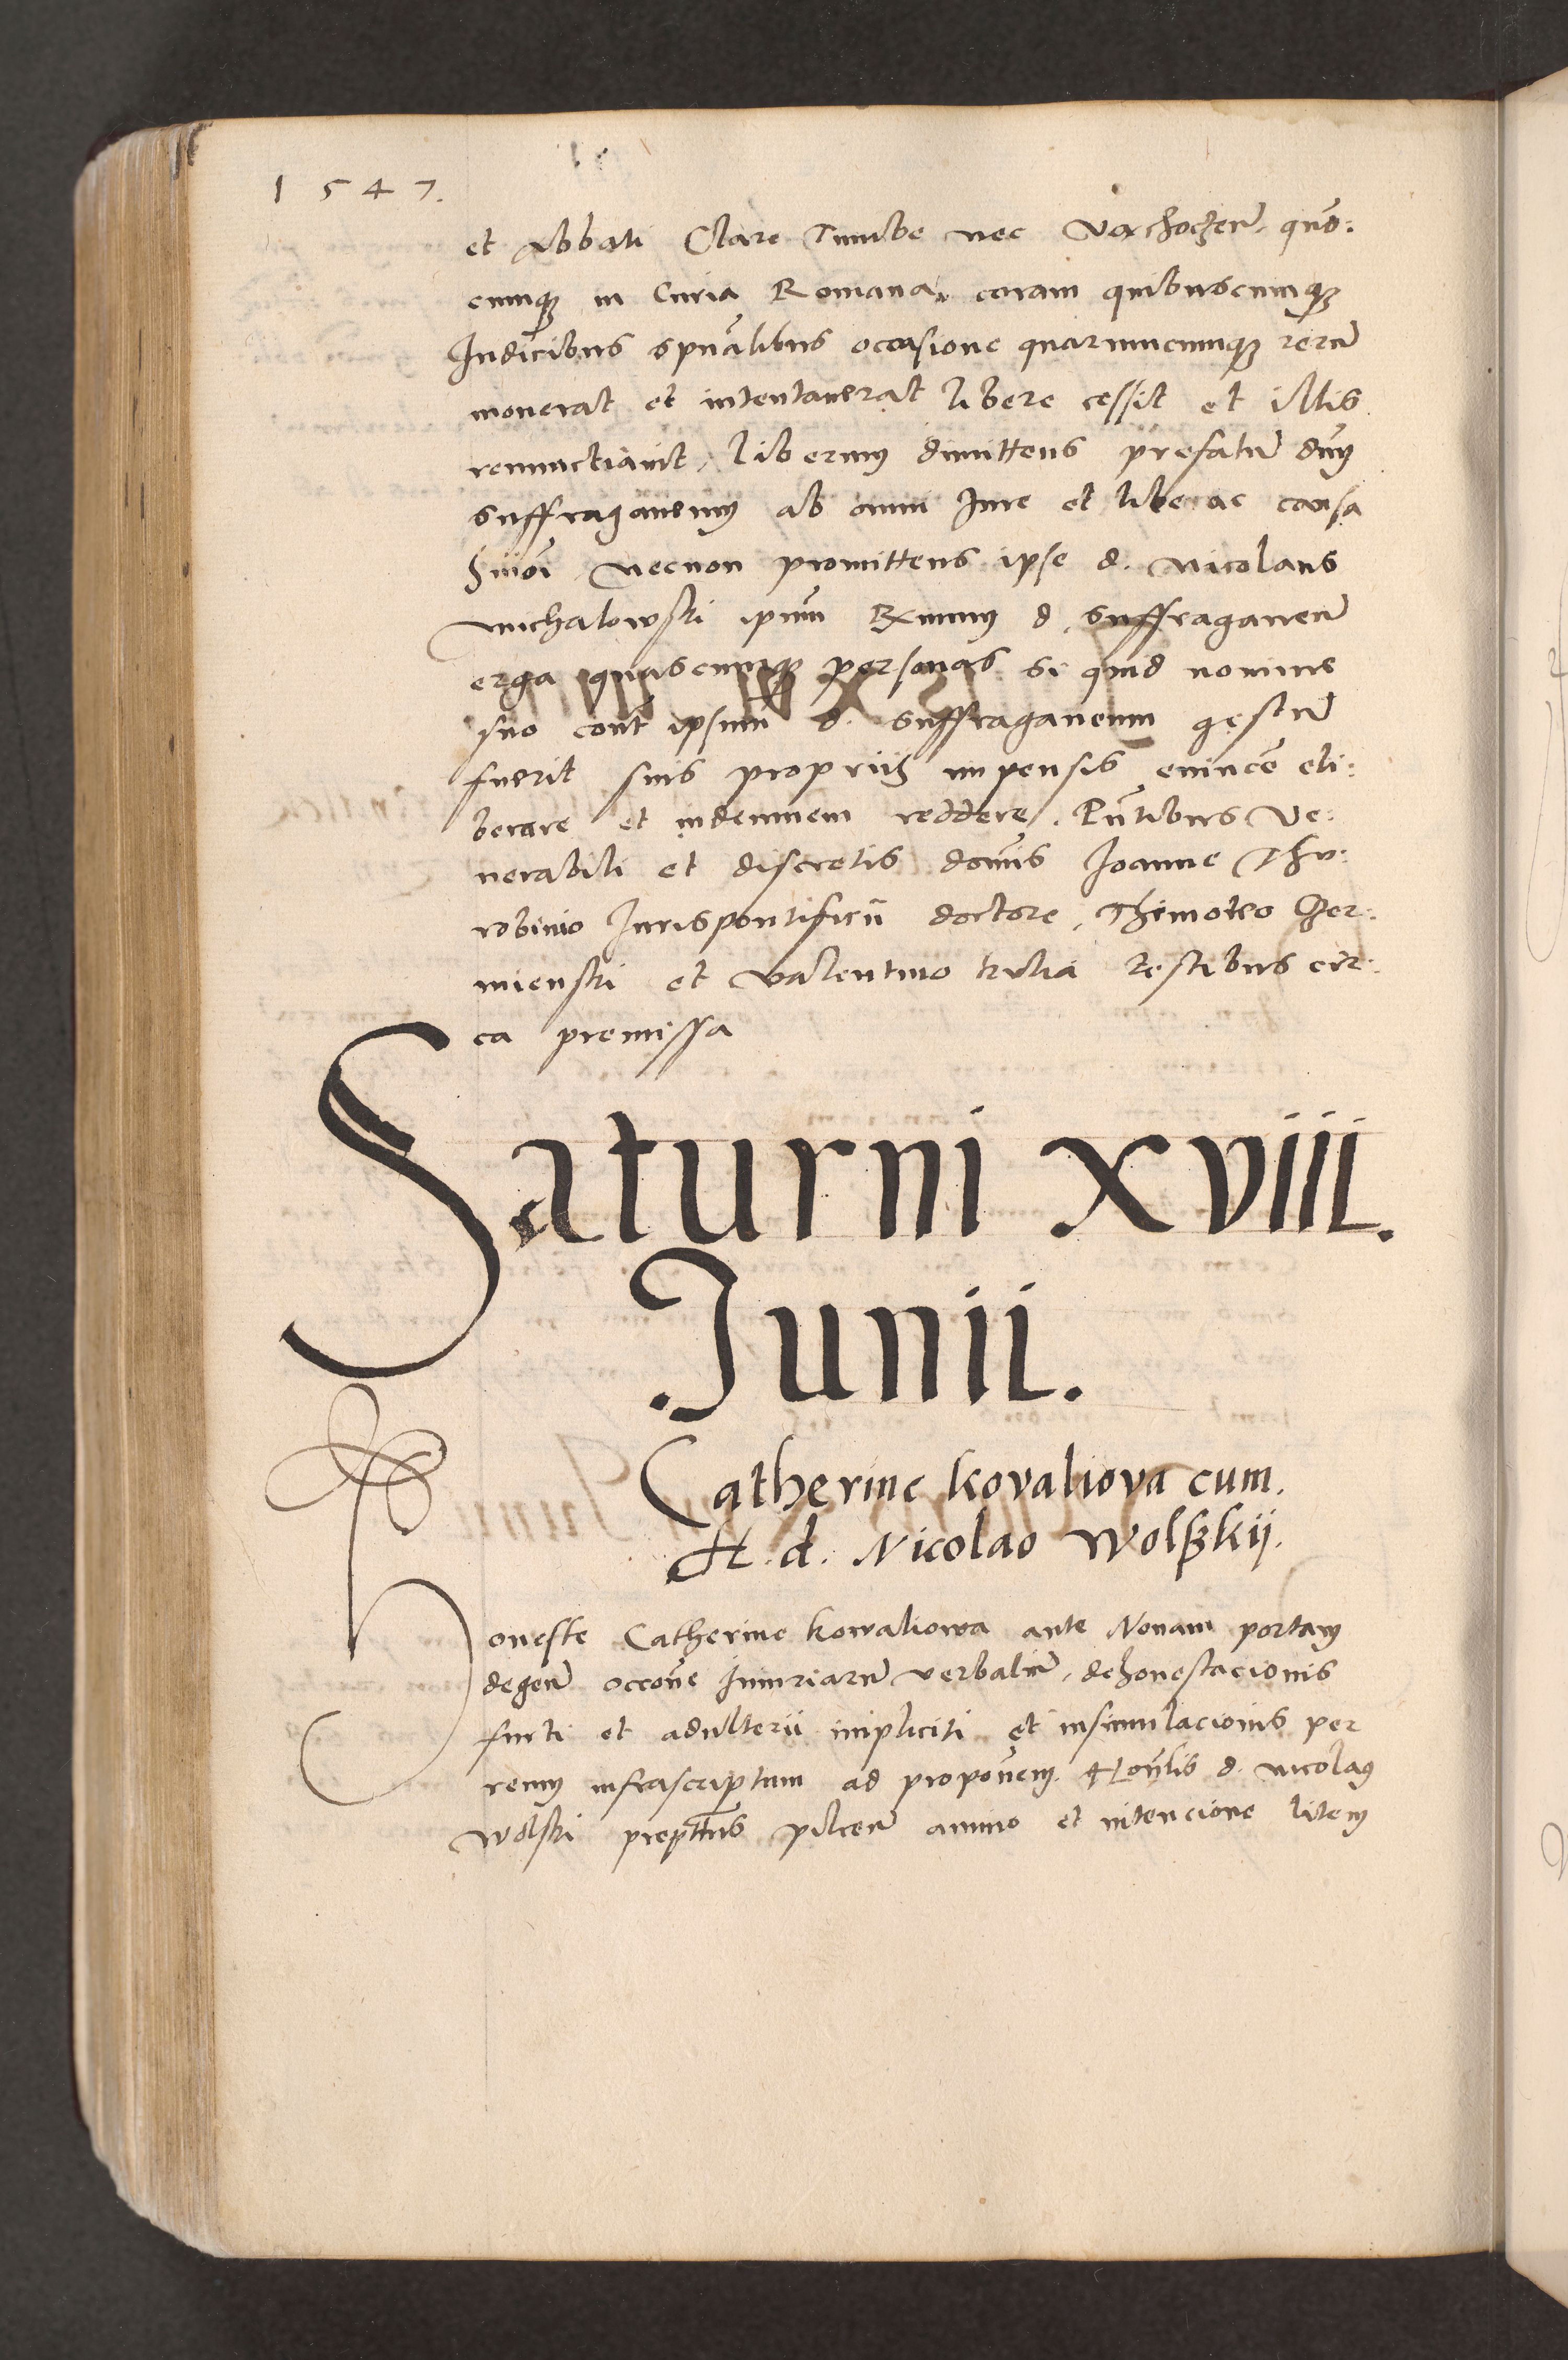 1547.
et Abbati Clare Tumbe nec Vachocżeñ. quõ:
cumqȝ in Curia Romana coram quibuscumqȝ
Iudicibus spũalibus occasione quarumcumqȝ rerũ
moverat et intentaverat libere cessit et illis
renunctiavit, liberum dimittens prefatũ dnm̃
suffraganeum ab omni Iure et libe ac causa
hmõi necnon promittens ipse d. Nicolaus
Michalowski ipm̃ Rx̃mum d. suffraganeũ
erga quascumqȝ personas si quid nomine
suo cont̃ ipsum d. suffraganeum gestũ
fuerit suis propriis impensis evincẽ eli:
berare et indemnem reddere. Pñtibus Ve:
nerabili et discretis dom̃s Joanne Thu:
robinio Iurispontificũ doctore, Thimoteo Cżer:
mienski et Valentino testibus cir:
ca premissa
Saturni xviii.
Junii.
Catherine Kovaliova cum.
H. d. Nicolao Wolßkij.
Honeste Catherine Kowaliowa ante Novam portam
degeñ occõne Iniuriarũ verbaliũ, dehonestacionis
furti et adulterii impliciti et insimulacionis per
reum infrascriptum ad proponem̃. Honlis̃ d. Nicolaus
Wolski prepttus̃ pilceñ animo et intencione litem